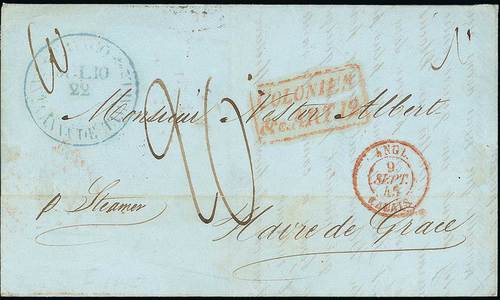 JULIO
22
COLONIES
&c. ART. 12
Monsieur Nestor Albert
ANGL.
9
SEPT.
45
CALAIS
p. Steamer
Havre de Grace